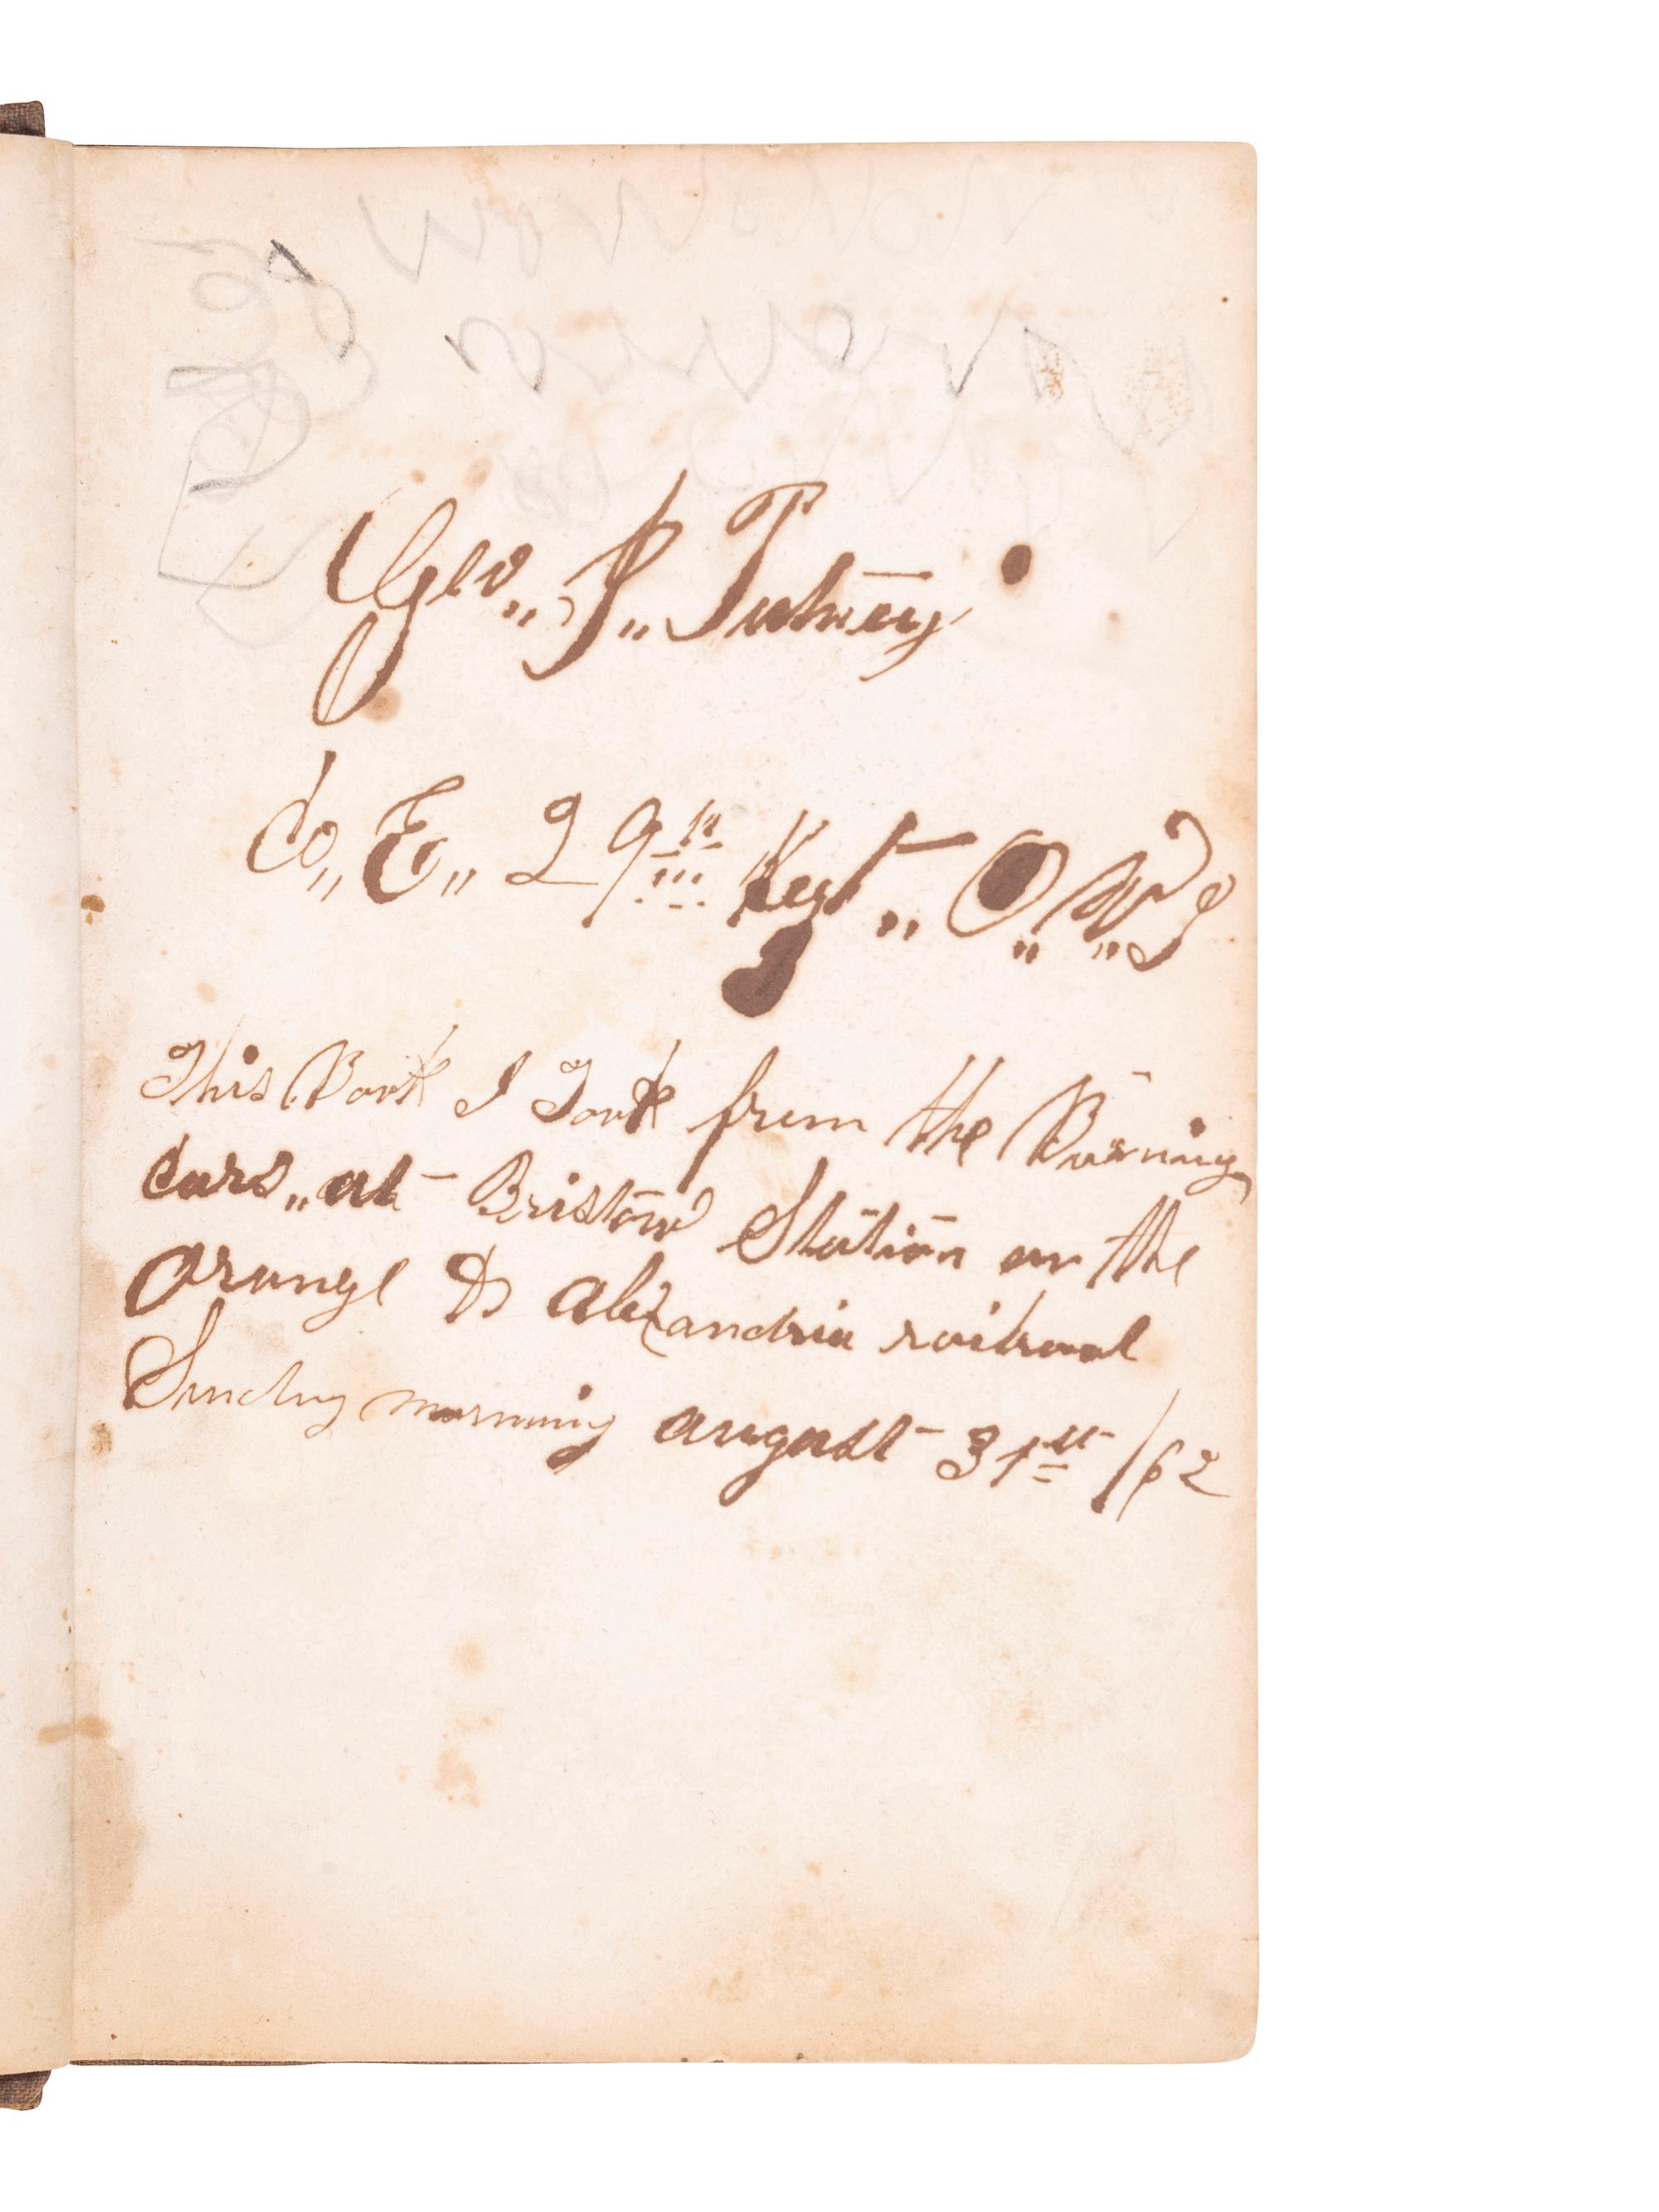 Geo,, P,, Putney
Co,, E,, 29th Regt,, O,, V,, I
This Book I Took from the Burning
Cars,, at Bristow Station on the
Orange & Alexandria railroad
Sunday morning august 31st /62